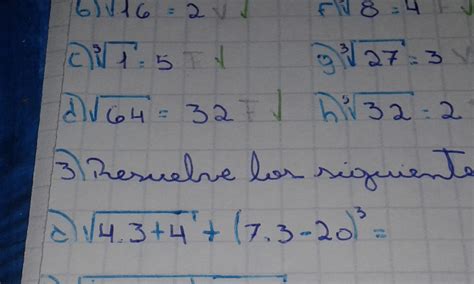 b) √16 = 2 V ✓ f) √8 = 4 F ✓
c) ³√1 = 5 F ✓ g) ³√27 = 3 V
d) √64 = 32 F ✓ h) ⁵√32 = 2
3) Resuelve los siguiente
a) √4.3+4 + (7.3-20)³ =